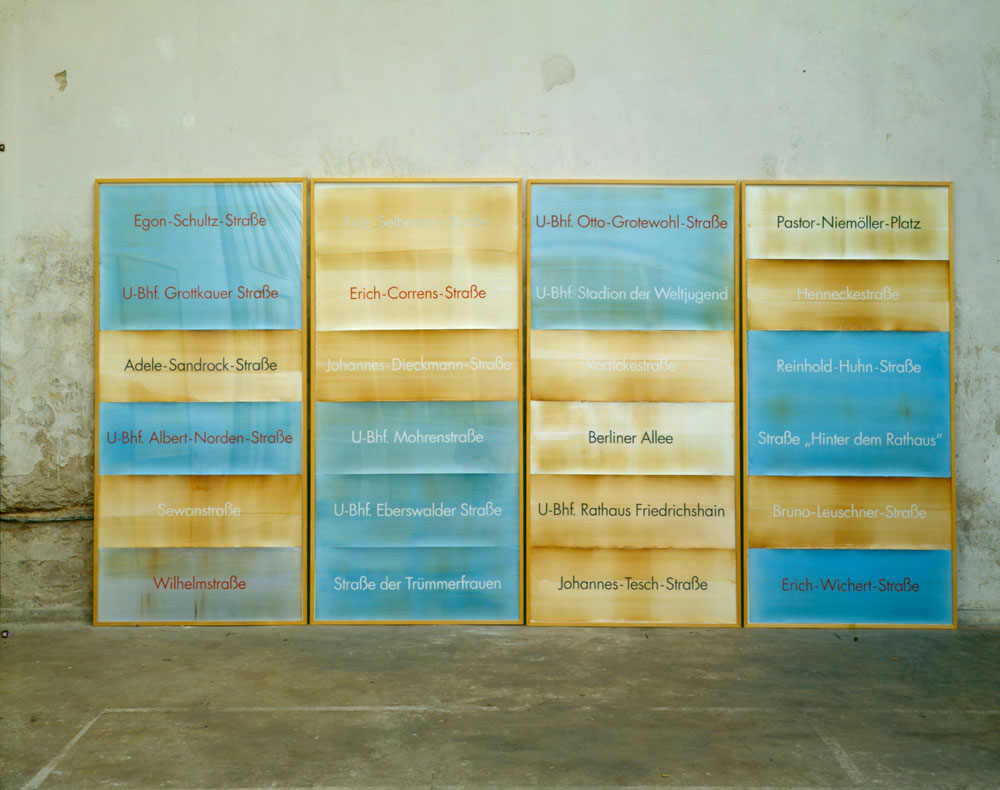 Egon-Schultz-Straße
U-Bhf. Grottkauer Straße
Adele-Sandrock-Straße
U-Bhf. Albert-Norden-Straße
Sewanstraße
Wilhelmstraße
Fritz-Selbmann-Straße
Erich-Correns-Straße
Johannes-Dieckmann-Straße
U-Bhf. Mohrenstraße
U-Bhf. Eberswalder Straße
Straße der Trümmerfrauen
U-Bhf. Otto-Grotewohl-Straße
U-Bhf. Stadion der Weltjugend
Radickestraße
Berliner Allee
U-Bhf. Rathaus Friedrichshain
Johannes-Tesch-Straße
Pastor-Niemöller-Platz
Henneckestraße
Reinhold-Huhn-Straße
Straße „Hinter dem Rathaus“
Bruno-Leuschner-Straße
Erich-Wichert-Straße